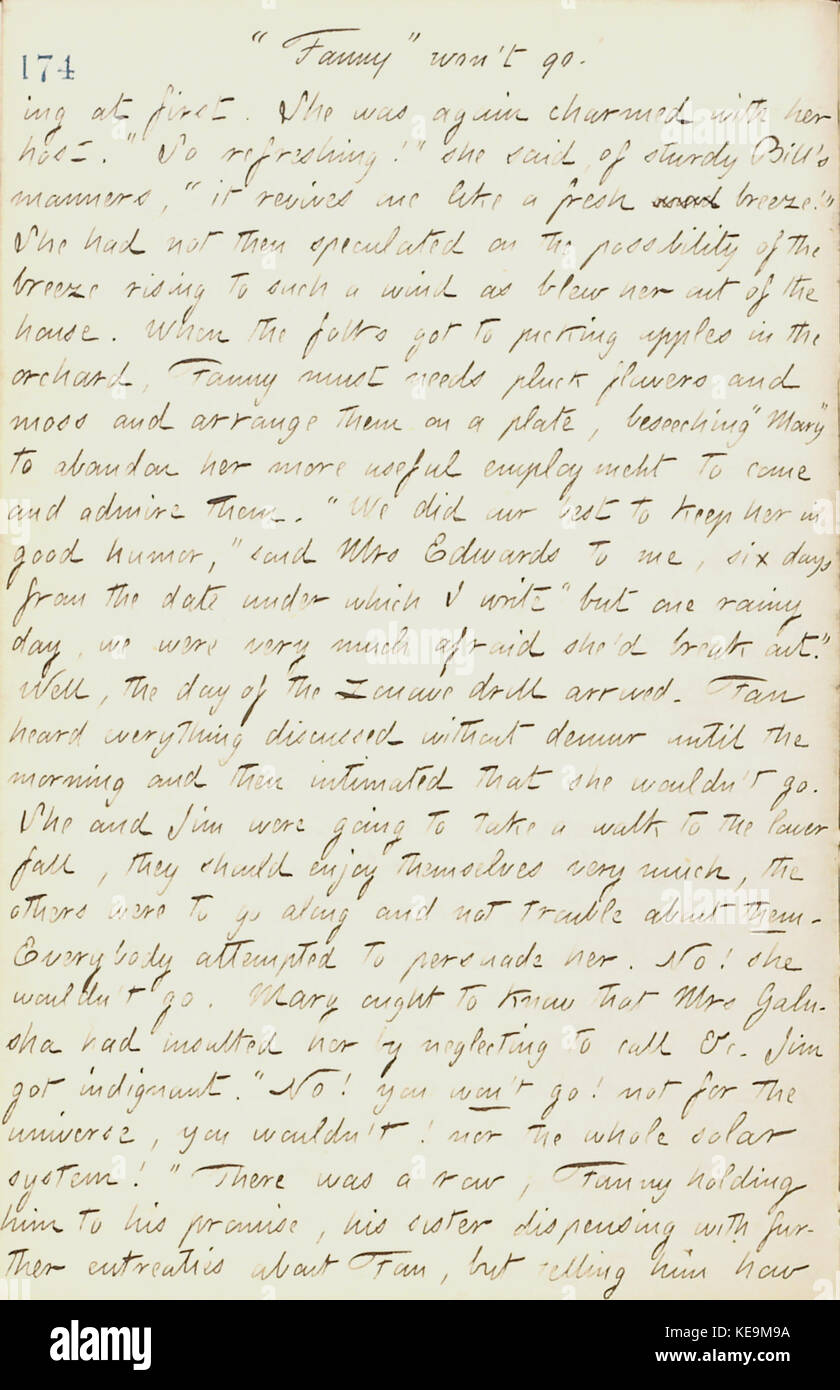 174
"Fanny" won't go.
ing at first. She was again charmed with her
host. "So refreshing!" she said, of sturdy Bill's
manners, "it revives one like a fresh breeze!"
She had not then speculated on the possibility of the
breeze rising to such a wind as blew her out of the
house. When the folks got to picking apples in the
orchard, Fanny must needs pluck flowers and
moss and arrange them on a plate, beseeching "Mary"
to abandon her more useful employment to come
and admire them. "We did our best to keep her in
good humor," said Mrs Edwards to me, six days
from the date under which I write "but one rainy
day, we were very much afraid she'd break out."
Well, the day of the Zouave drill arrived. Fan
heard everything discussed without demur until the
morning and then intimated that she wouldn't go.
She and Jim were going to take a walk to the lower
fall, they should enjoy themselves very much, the
others were to go along and not trouble about them.
Everybody attempted to persuade her. No! she
wouldn't go. Mary ought to know that Mrs Galu-
sha had insulted her by neglecting to call &c. Jim
got indignant. "No! you won't go! not for the
universe, you wouldn't! nor the whole solar
system!" There was a row, Fanny holding
him to his promise, his sister dispensing with fur-
ther entreaties about Fan, but telling him how
alamy
alamy stock photo
KE9M9A
www.alamy.com